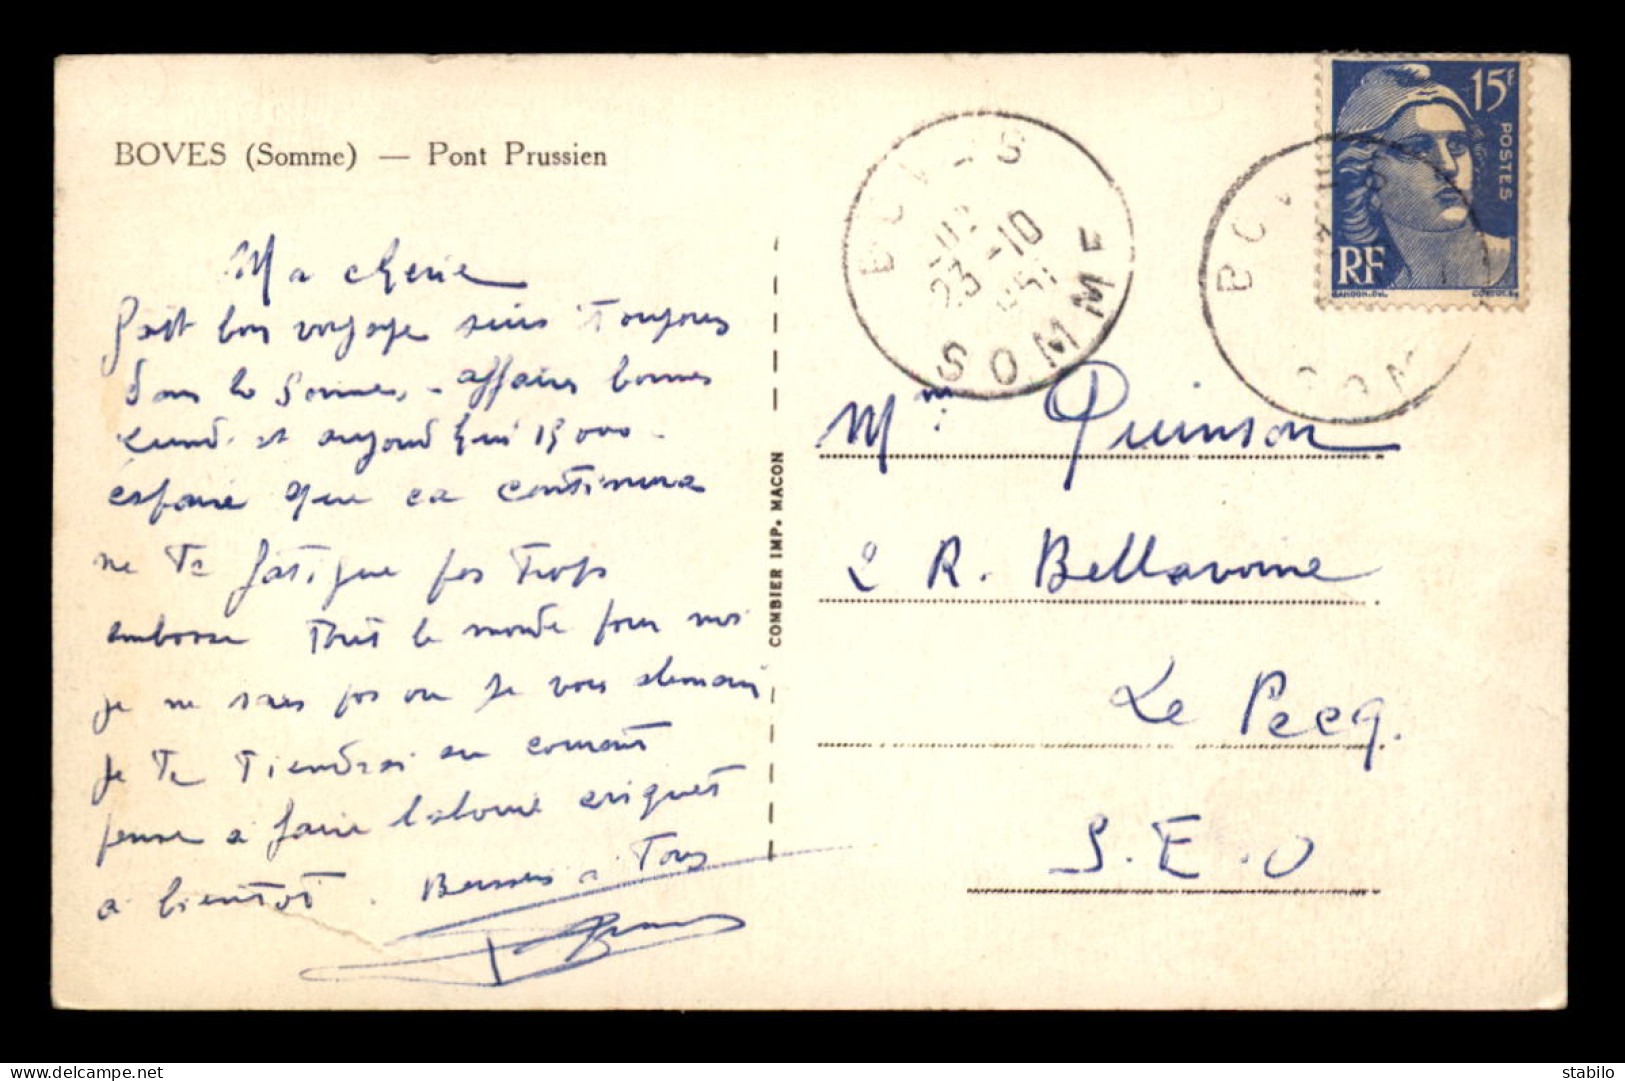 BOVES (Somme) — Pont Prussien
Ma cherie
fait bon voyage suis Toujours
dans la Somme. - affaires bonnes
Lundi et aujourd'hui 15000 -
espaire que ca continura
ne Te fatigue pas Trops
embrasse Tout le monde pour moi
je ne sais pas ou je vais demain
je Te Tiendrai au courant
pense a faire
a bientot. Baisers a Tous
COMBIER IMP. MACON
BOVES
23-10
SOMME
15F
POSTES
RF
GANDON. DEL
BOV
SOM
Mme Quinson
2 R. Bellavoine
Le Pecq.
S.E.O
delcampe.net
stabilo